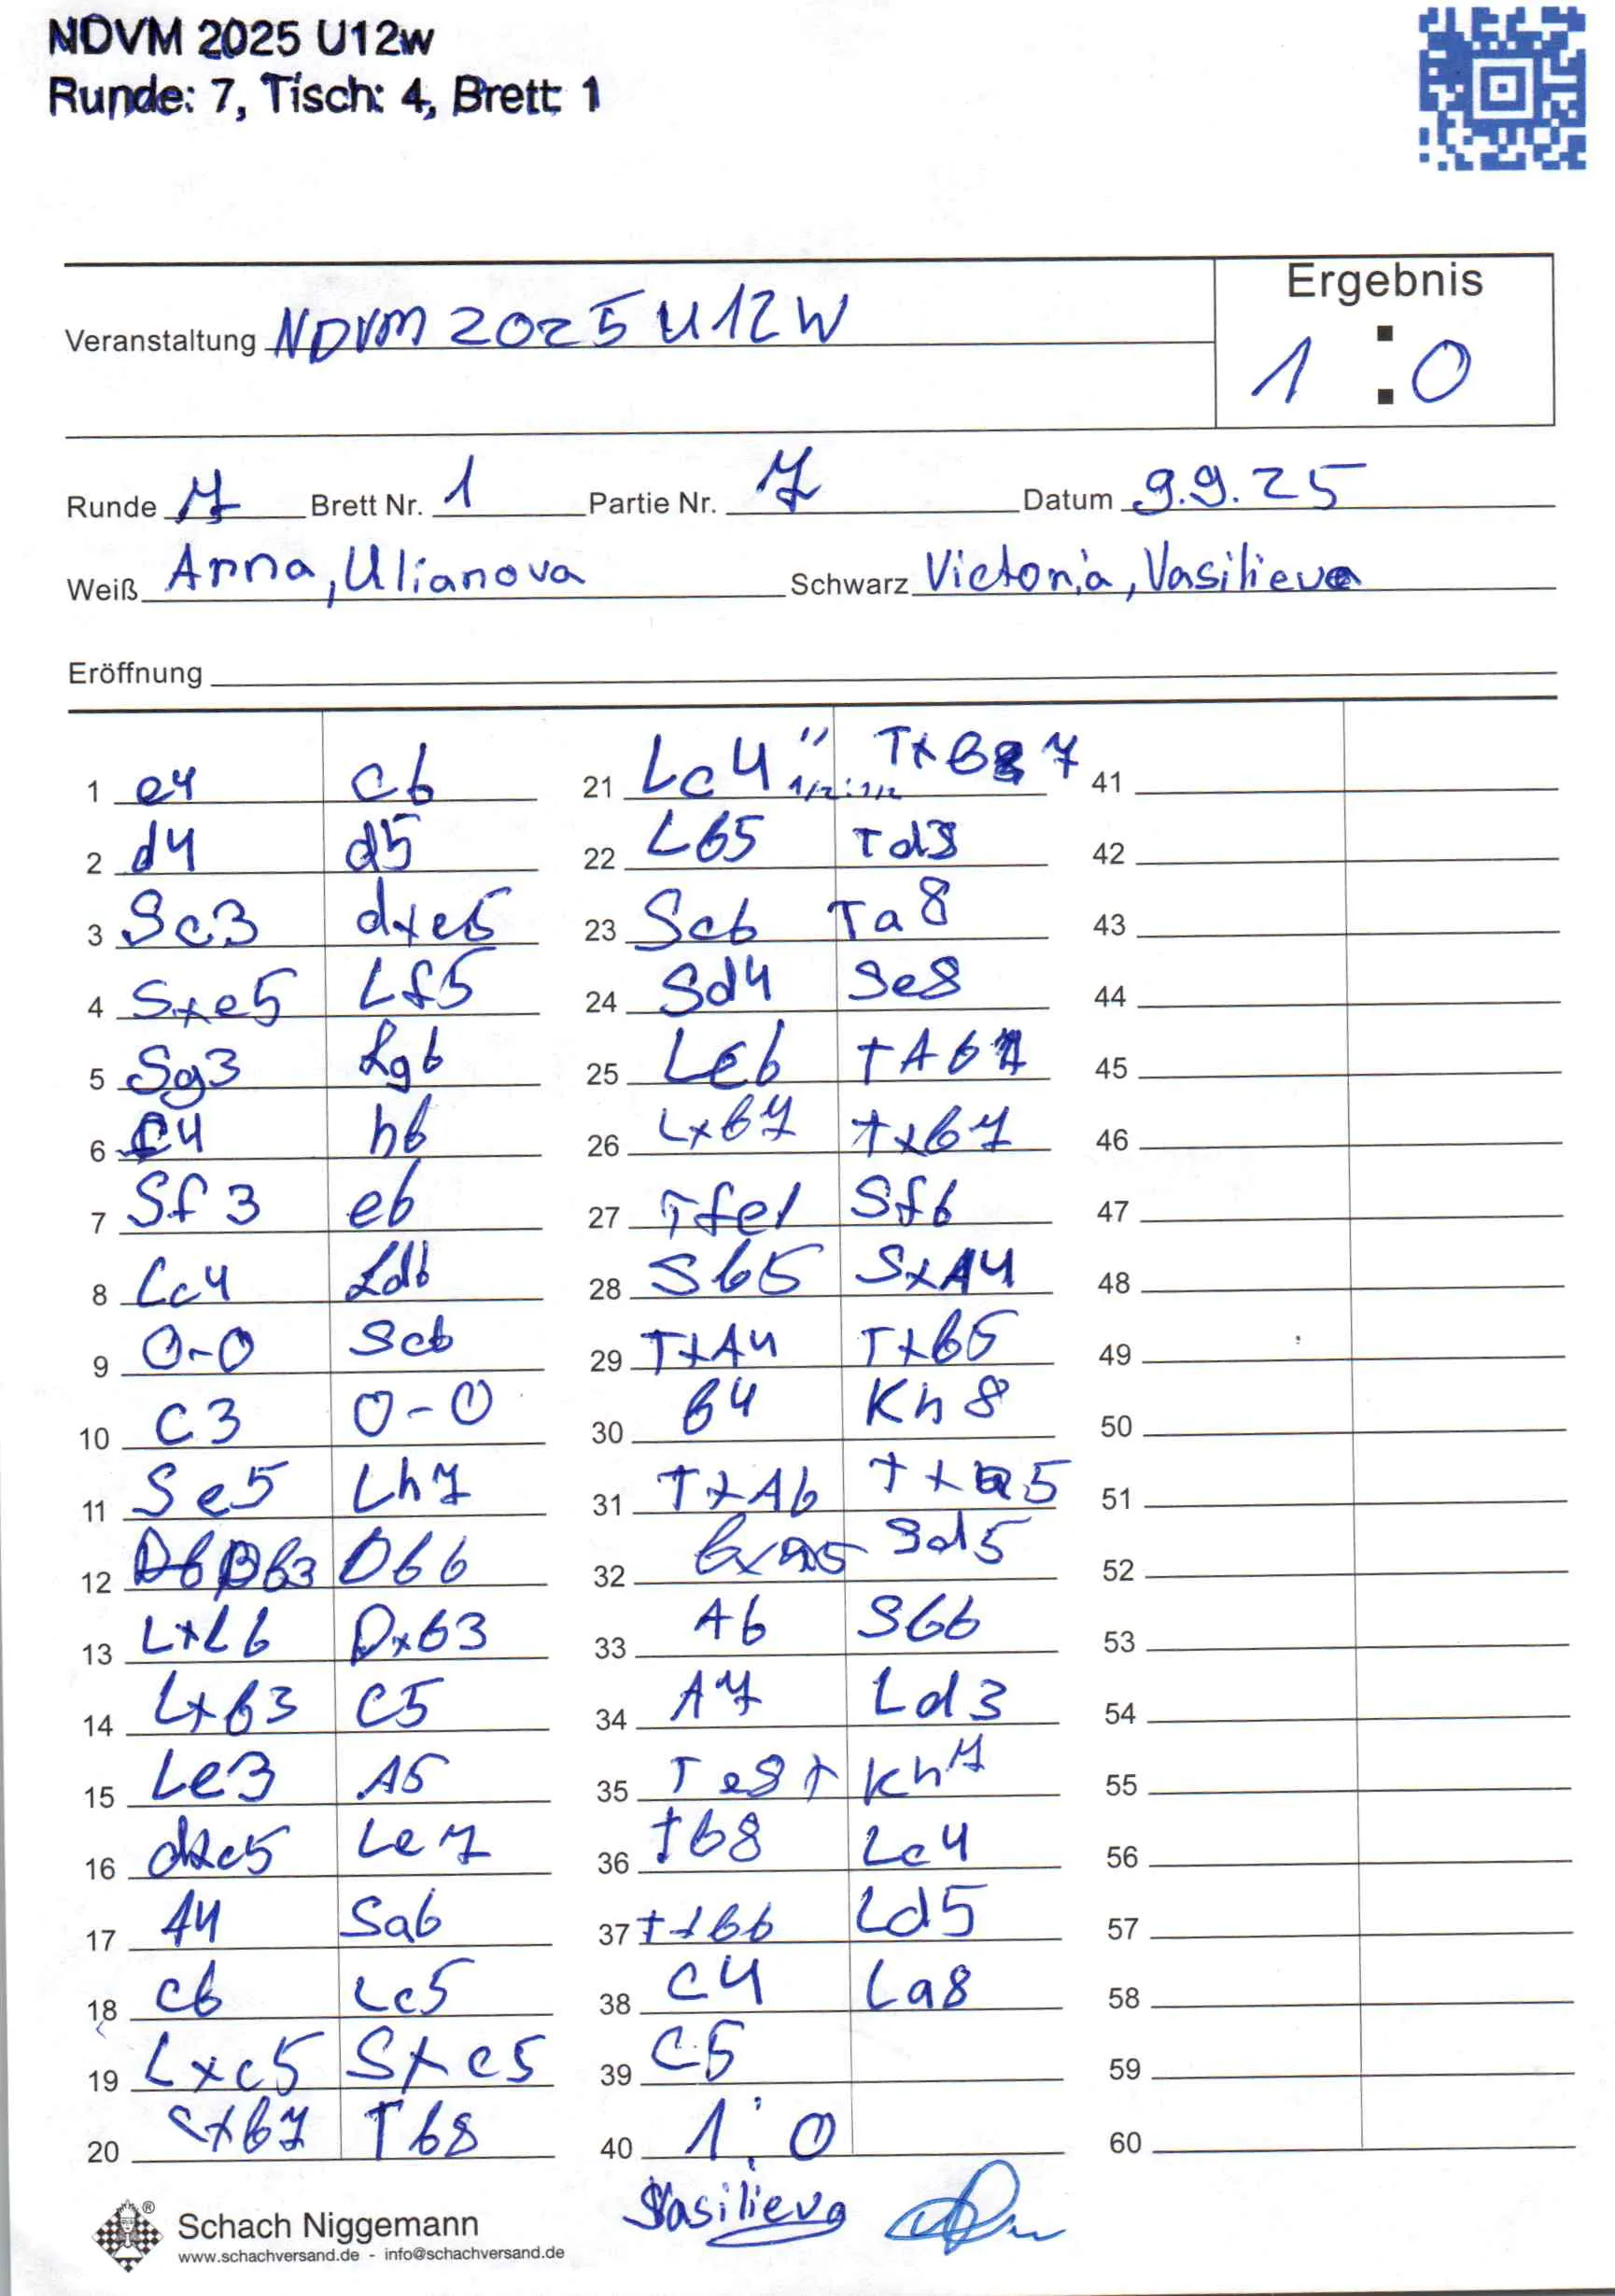 NDVM 2025 U12w
Runde: 7, Tisch: 4, Brett: 1
Ergebnis
Veranstaltung NDVM 2025 U12W
1 : 0
Runde 7 Brett Nr. 1 Partie Nr. 7 Datum 9.9.25
Weiß Anna, Ulianova Schwarz Victoria, Vasilieva
Eröffnung
1 e4 c6 21 Lc4 " 1/2:1/2 Txb7 41
2 d4 d5 22 Lb5 Td3 42
3 Sc3 dxe5 23 Sc6 Ta8 43
4 Sxe5 Lf5 24 Sd4 Se8 44
5 Sg3 Lg6 25 Lc6 TA67 45
6 f4 h6 26 Lxb7 Txb7 46
7 Sf3 e6 27 Tfe1 Sf6 47
8 Lc4 Ld6 28 Sb5 SxA4 48
9 0-0 Sc6 29 TxA4 Txb5 49
10 C3 0-0 30 b4 Kh8 50
11 Se5 Lh7 31 TxA6 Txa5 51
12 Db3 Db6 32 bxa5 Sd5 52
13 LxL6 Dxb3 33 A6 Sb6 53
14 Lxb3 C5 34 A7 Ld3 54
15 Le3 A5 35 Te8+ Kh7 55
16 dxc5 Le7 36 Tb8 Lc4 56
17 A4 Sa6 37 Txb6 Ld5 57
18 c6 Lc5 38 C4 La8 58
19 Lxc5 Sxc5 39 C5 59
20 cxb7 Tb8 40 1:0 60
Vasilieva
Schach Niggemann
www.schachversand.de - info@schachversand.de